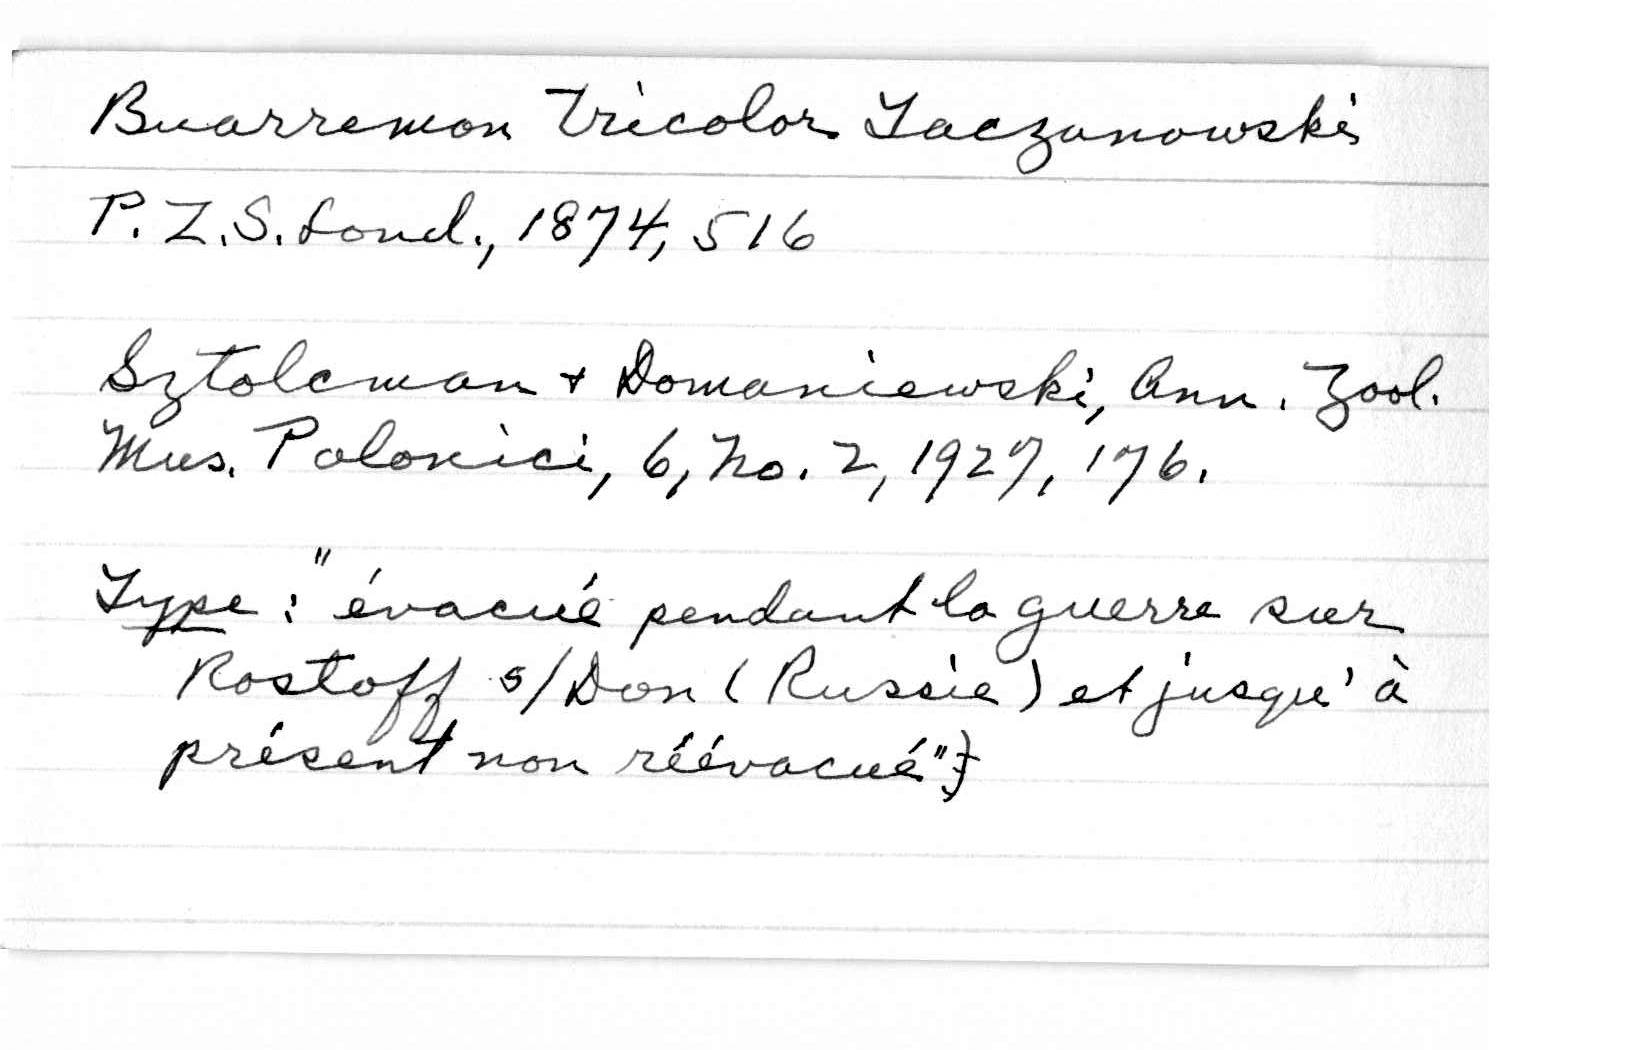 Buarremon tricolor Taczanowski
P. Z. S. Lond., 1874, 516
Sztolcman + Domaniewski, Ann. Zool.
Mus. Polonici, 6, No. 2, 1927, 176.
Type: "évacué pendant la guerre sur
Rostoff s/Don (Russie) et jusqu'à
présent non réévacué"